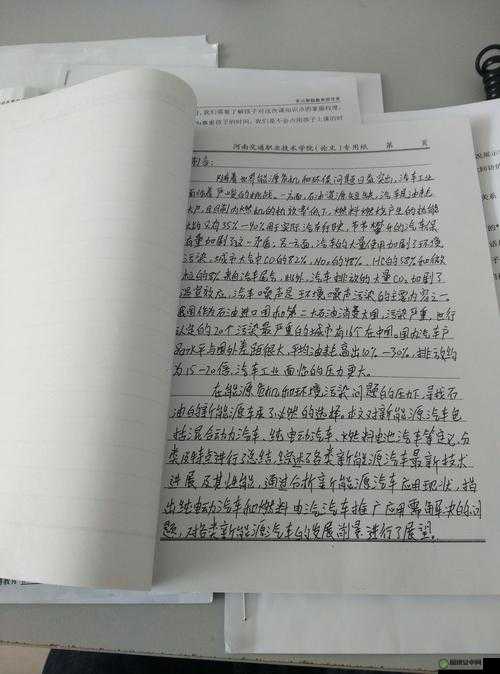 们需要了解孩子对这次课知识点的掌握程度,
河南交通职业技术学院(论文)专用纸 第 页
随着世界能源危机和环保问题日益突出,汽车工业
面临着严峻的挑战。一方面,石油资源短缺,汽车是油耗
大户,且目前内燃机的热效率低下,燃料燃烧产生的热能
大约只有35%-40%用于实际汽车行驶,节节攀升的汽车保
有量加剧了这一矛盾;另一方面,汽车的大量使用加剧了环境
污染,城市大气中CO的82%、NOx的48%、HC的58%和微
粒的8%来自汽车尾气,此外,汽车排放的大量CO₂加剧了
温室效应,汽车噪声是环境噪声污染的主要内容之一。
我国作为石油进口国和第二大石油消费大国,污染严重,世行
认定的20个污染最严重的城市有16个在中国。国内汽车产
品水平与国外差距很大,平均油耗高出10%-30%,排放约
为15-20倍,汽车工业面临的压力更大。
在能源危机和环境污染问题的压力下,寻找石
油的新能源车成了必然的选择。本文对新能源汽车包
括混合动力汽车、纯电动汽车、燃料电池汽车等定义、分
类及特点进行了总结,综述了各类新能源汽车最新技术
进展及其性能,通过分析新能源汽车应用现状,指
出纯电动汽车和燃料电池汽车推广应用需解决的问
题,对各类新能源汽车的发展前景进行了展望。